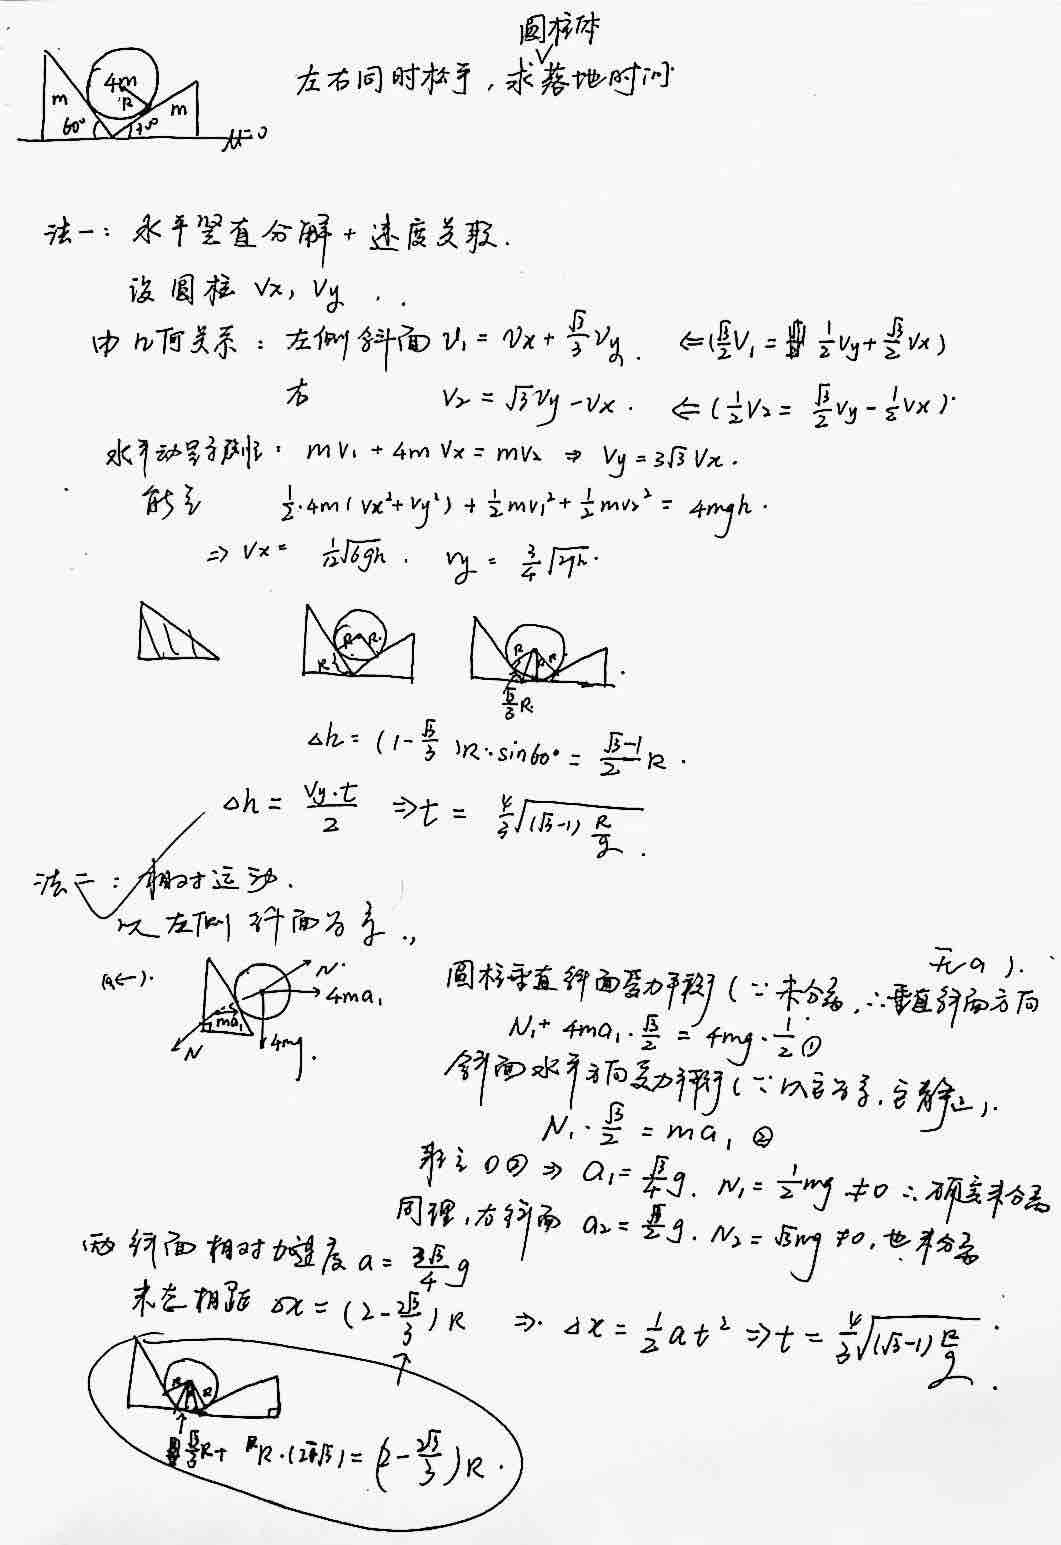 圆柱体
左右同时松手，求落地时间.
4m
R
m
m
60°
30°
μ=0
法一：水平竖直分解 + 速度关联.
设圆柱 Vx, Vy
由几何关系：左侧斜面 V₁ = Vx + √3/3 Vy. ⇐ (√3/2 V₁ = 1/2 Vy + √3/2 Vx)
右 V₂ = √3Vy - Vx. ⇐ (1/2 V₂ = √3/2 Vy - 1/2 Vx).
水平动量守恒：mV₁ + 4mVx = mV₂ ⇒ Vy = 3√3 Vx.
能量 1/2·4m(Vx²+Vy²) + 1/2 mV₁² + 1/2 mV₂² = 4mgh.
⇒ Vx = 1/12 √6gh. Vy = 3/4 √2gh.
R R
R
R R
√3/3 R
Δh = (1-√3/3)R·sin60° = √3-1/2 R.
Δh = Vy·t/2 ⇒ t = 4/3 √(√3-1)R/g.
法二：相对运动.
以左侧斜面为系.,
(a←).
N.
4ma₁
ma₁
N
4mg.
圆柱垂直斜面受力平衡 (∵未分离, ∴垂直斜面方向
无a).
N₁ + 4ma₁·√3/2 = 4mg·1/2 ①
斜面水平方向受力平衡 (∵以它为系, 它静止).
N₁·√3/2 = ma₁ ②
联立①② ⇒ a₁ = √3/4 g. N₁ = 1/2 mg ≠ 0 ∴确定未分离
同理, 右斜面 a₂ = √3/2 g. N₂ = √3mg ≠ 0, 也未分离
两斜面相对加速度 a = 3√3/4 g
末态相距 Δx = (2-2√3/3)R ⇒. Δx = 1/2 at² ⇒ t = 4/3 √(√3-1)R/g.
R R
√3/3 R + R·(2-√3) = (2-2√3/3)R.